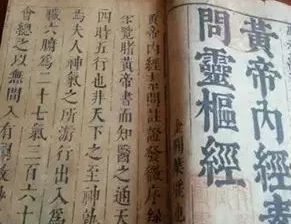 黃帝內經素
問靈樞經
金閶葉
黃帝內經素問註證發微序
覽睹黃帝書而知醫之通天
四時五行也非天下之至神孰
焉夫人神氣之所游行出入為
臟六腑為二十七氣三百六十
會總之以無間入有